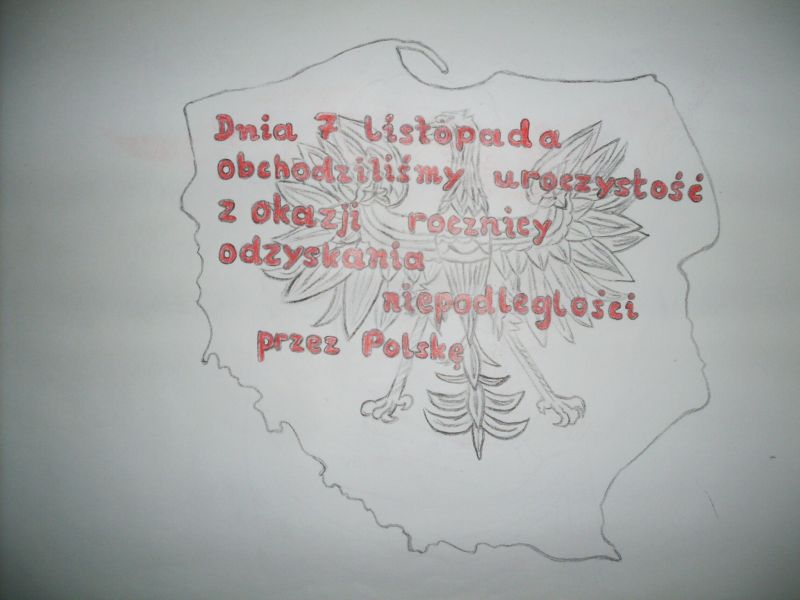 Dnia 7 listopada
obchodziliśmy uroczystość
z okazji rocznicy
odzyskania
niepodległości
przez Polskę